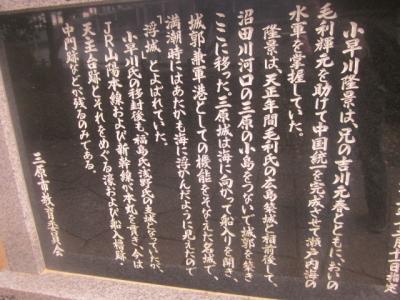 月十一日指定
小早川隆景は、兄の吉川元春とともに、おいの
毛利輝元を助けて中国統一を完成させて瀬戸内海の
水軍を掌握していた。
隆景は、天正年間毛利氏の広島築城と相前後して、
沼田川河口の三原の小島をつないで城郭を築き
ここに移った。三原城は海に向って船入りを開き、
城郭兼軍港としての機能をそなえた名城で、
満潮時にはあたかも海に浮かんだように見えたので
「浮城」とよばれていた。
小早川氏の移封後も福島氏、浅野氏の支城となっていたが、
JR山陽本線および新幹線が本丸を貫き、今は
天主台跡とそれをめぐる濠および船入櫓跡、
中門跡などが残るのみである。
三原市教育委員会